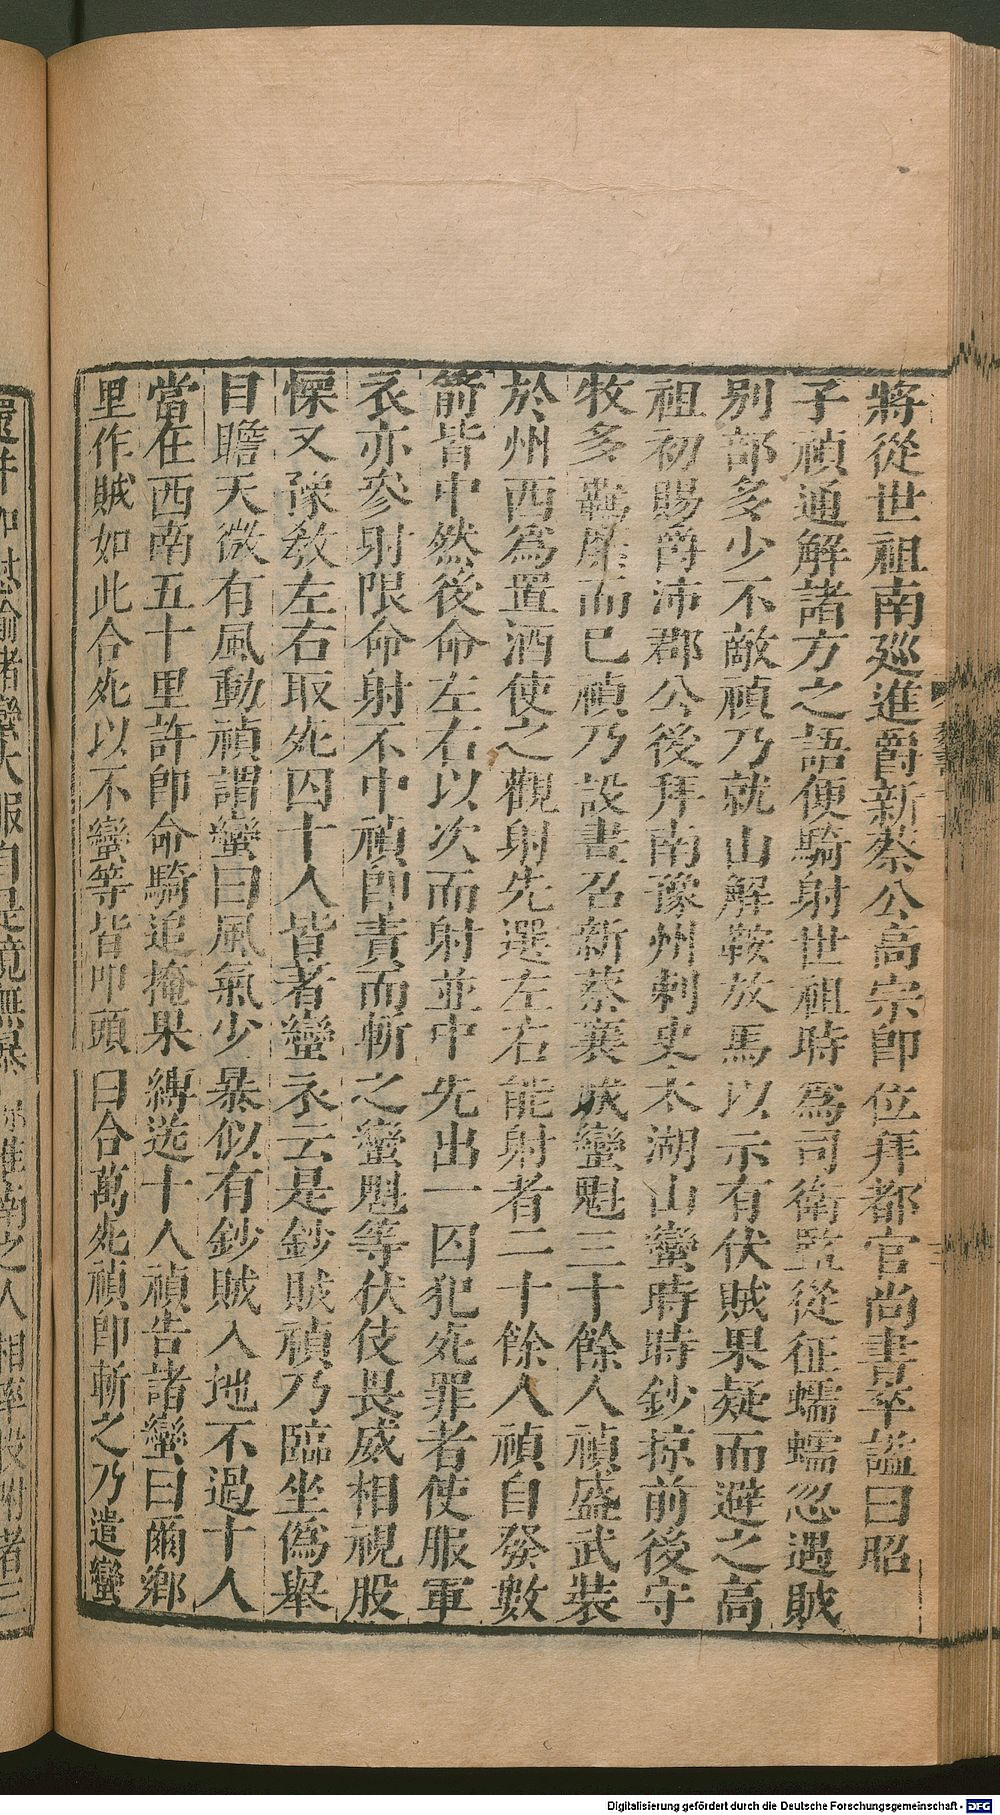 將從世祖南廵進爵新蔡公高宗即位拜都官尚書卒謚曰昭
子禎通解諸方之語便騎射世祖時爲司衛監從征蠕蠕忽遇賊
别部多少不敵禎乃就山解鞍放馬以示有伏賊果疑而避之高
祖初賜爵沛郡公後拜南豫州刺史太湖山蠻時時鈔掠前後守
牧多羈縻而已禎乃設畫召新蔡襄城蠻魁三十餘人禎盛武裝
於州西爲置酒使之觀射先選左右能射者二十餘人禎自發數
箭皆中然後命左右以次而射並中先出一囚犯死罪者使服軍
衣亦參射限命射不中禎即責而斬之蠻魁等伏伎畏威相視股
慄又豫敎左右取死囚十人皆著蠻衣云是鈔賊禎乃臨坐僞舉
目瞻天微有風動禎謂蠻曰風氣少暴似有鈔賊入境不過十人
當在西南五十里許即命騎追掩果縛送十人禎告諸蠻曰爾鄉
里作賊如此合死以不蠻等皆叩頭曰合萬死禎即斬之乃遣蠻
還并加慰諭諸蠻大服自是境無暴掠淮南之人相率投附者三
Digitalisierung gefördert durch die Deutsche Forschungsgemeinschaft - DFG